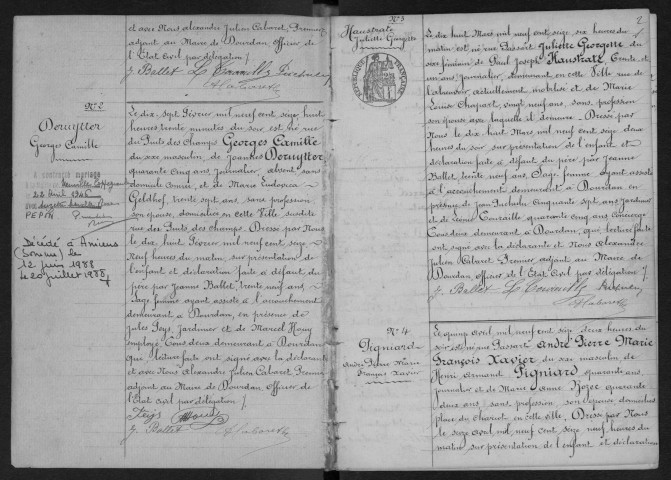 et avec Nous Alexandre Julien Caboret, Premier
adjoint au Maire de Dourdan Officier de
l'Etat Civil par délégation /.
J. Ballet
N° 2
Deruytter
Georges Camille
A contracté mariage
Décédé à Amiens
(Somme) le
12 juin 1988
le 20 juillet 1988
Le dix sept Février, mil neuf cent seize huit
heures trente minutes du soir, est né rue
du Puits des Champs Georges Camille
du sexe masculin, de Joannes Deruytter
quarante cinq ans, journalier, absent, sans
domicile connu, et de Marie Ludovica
Geldhof, trente sept ans, sans profession
son épouse, domiciliés en cette Ville, susdite
rue des Puits des Champs. Dressé par Nous
le dix huit Février, mil neuf cent seize
Neuf heures du matin, sur présentation de
l'enfant et déclaration faite à défaut du
père par Jeanne Ballet, trente neuf ans,
Sage femme ayant assisté à l'accouchement
demeurant à Dourdan, en présence de
Jules Jardinier et de Marcel
employé, tous deux demeurant à Dourdan
qui, lecture faite ont signé avec la déclarante
et avec Nous Alexandre Julien Caboret Premier
adjoint au Maire de Dourdan Officier de
l'Etat Civil par délégation /.
J. Ballet
N° 3
Haustrate
Juliette Georgette
REPUBLIQUE FRANÇAISE
2
Le dix huit Mars, mil neuf cent seize, six heures du
matin est née rue Passart Juliette Georgette du
sexe féminin de Paul Joseph Haustrate, trente et
un ans, journalier, demeurant en cette Ville rue de
l'abreuvoir, actuellement mobilisé et de Marie
Louise Chapart, vingt neuf ans, sans profession
son épouse avec laquelle il demeure. Dressé par
Nous le dix huit Mars, mil neuf cent seize deux
heures du soir sur présentation de l'enfant et
déclaration faite à défaut du père par Jeanne
Ballet, trente neuf ans, Sage femme ayant assisté
à l'accouchement demeurant à Dourdan en
présence de cinquante sept ans, jardinier
et de Léonie quarante cinq ans, concierge
tous deux demeurant à Dourdan, qui, lecture faite
ont signé avec la déclarante et Nous Alexandre
Julien Caboret, Premier adjoint au Maire de
Dourdan, officier de l'Etat Civil par délégation /.
J. Ballet
N° 4
Pigniard
André Pierre Marie
François Xavier
Le quinze Avril, mil neuf cent seize deux heures du
soir est né rue Passart André Pierre Marie
François Xavier du sexe masculin de
Henri Armand Pigniard quarante ans,
journalier et de Marie Anne quarante
deux ans, sans profession, son épouse domiciliés
place du Chariot en cette ville, Dressé par Nous
le seize Avril, mil neuf cent seize, neuf heures du
matin, sur présentation de l'enfant et déclaration